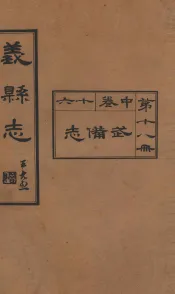 義縣志
第十八冊
中卷十六
武備志